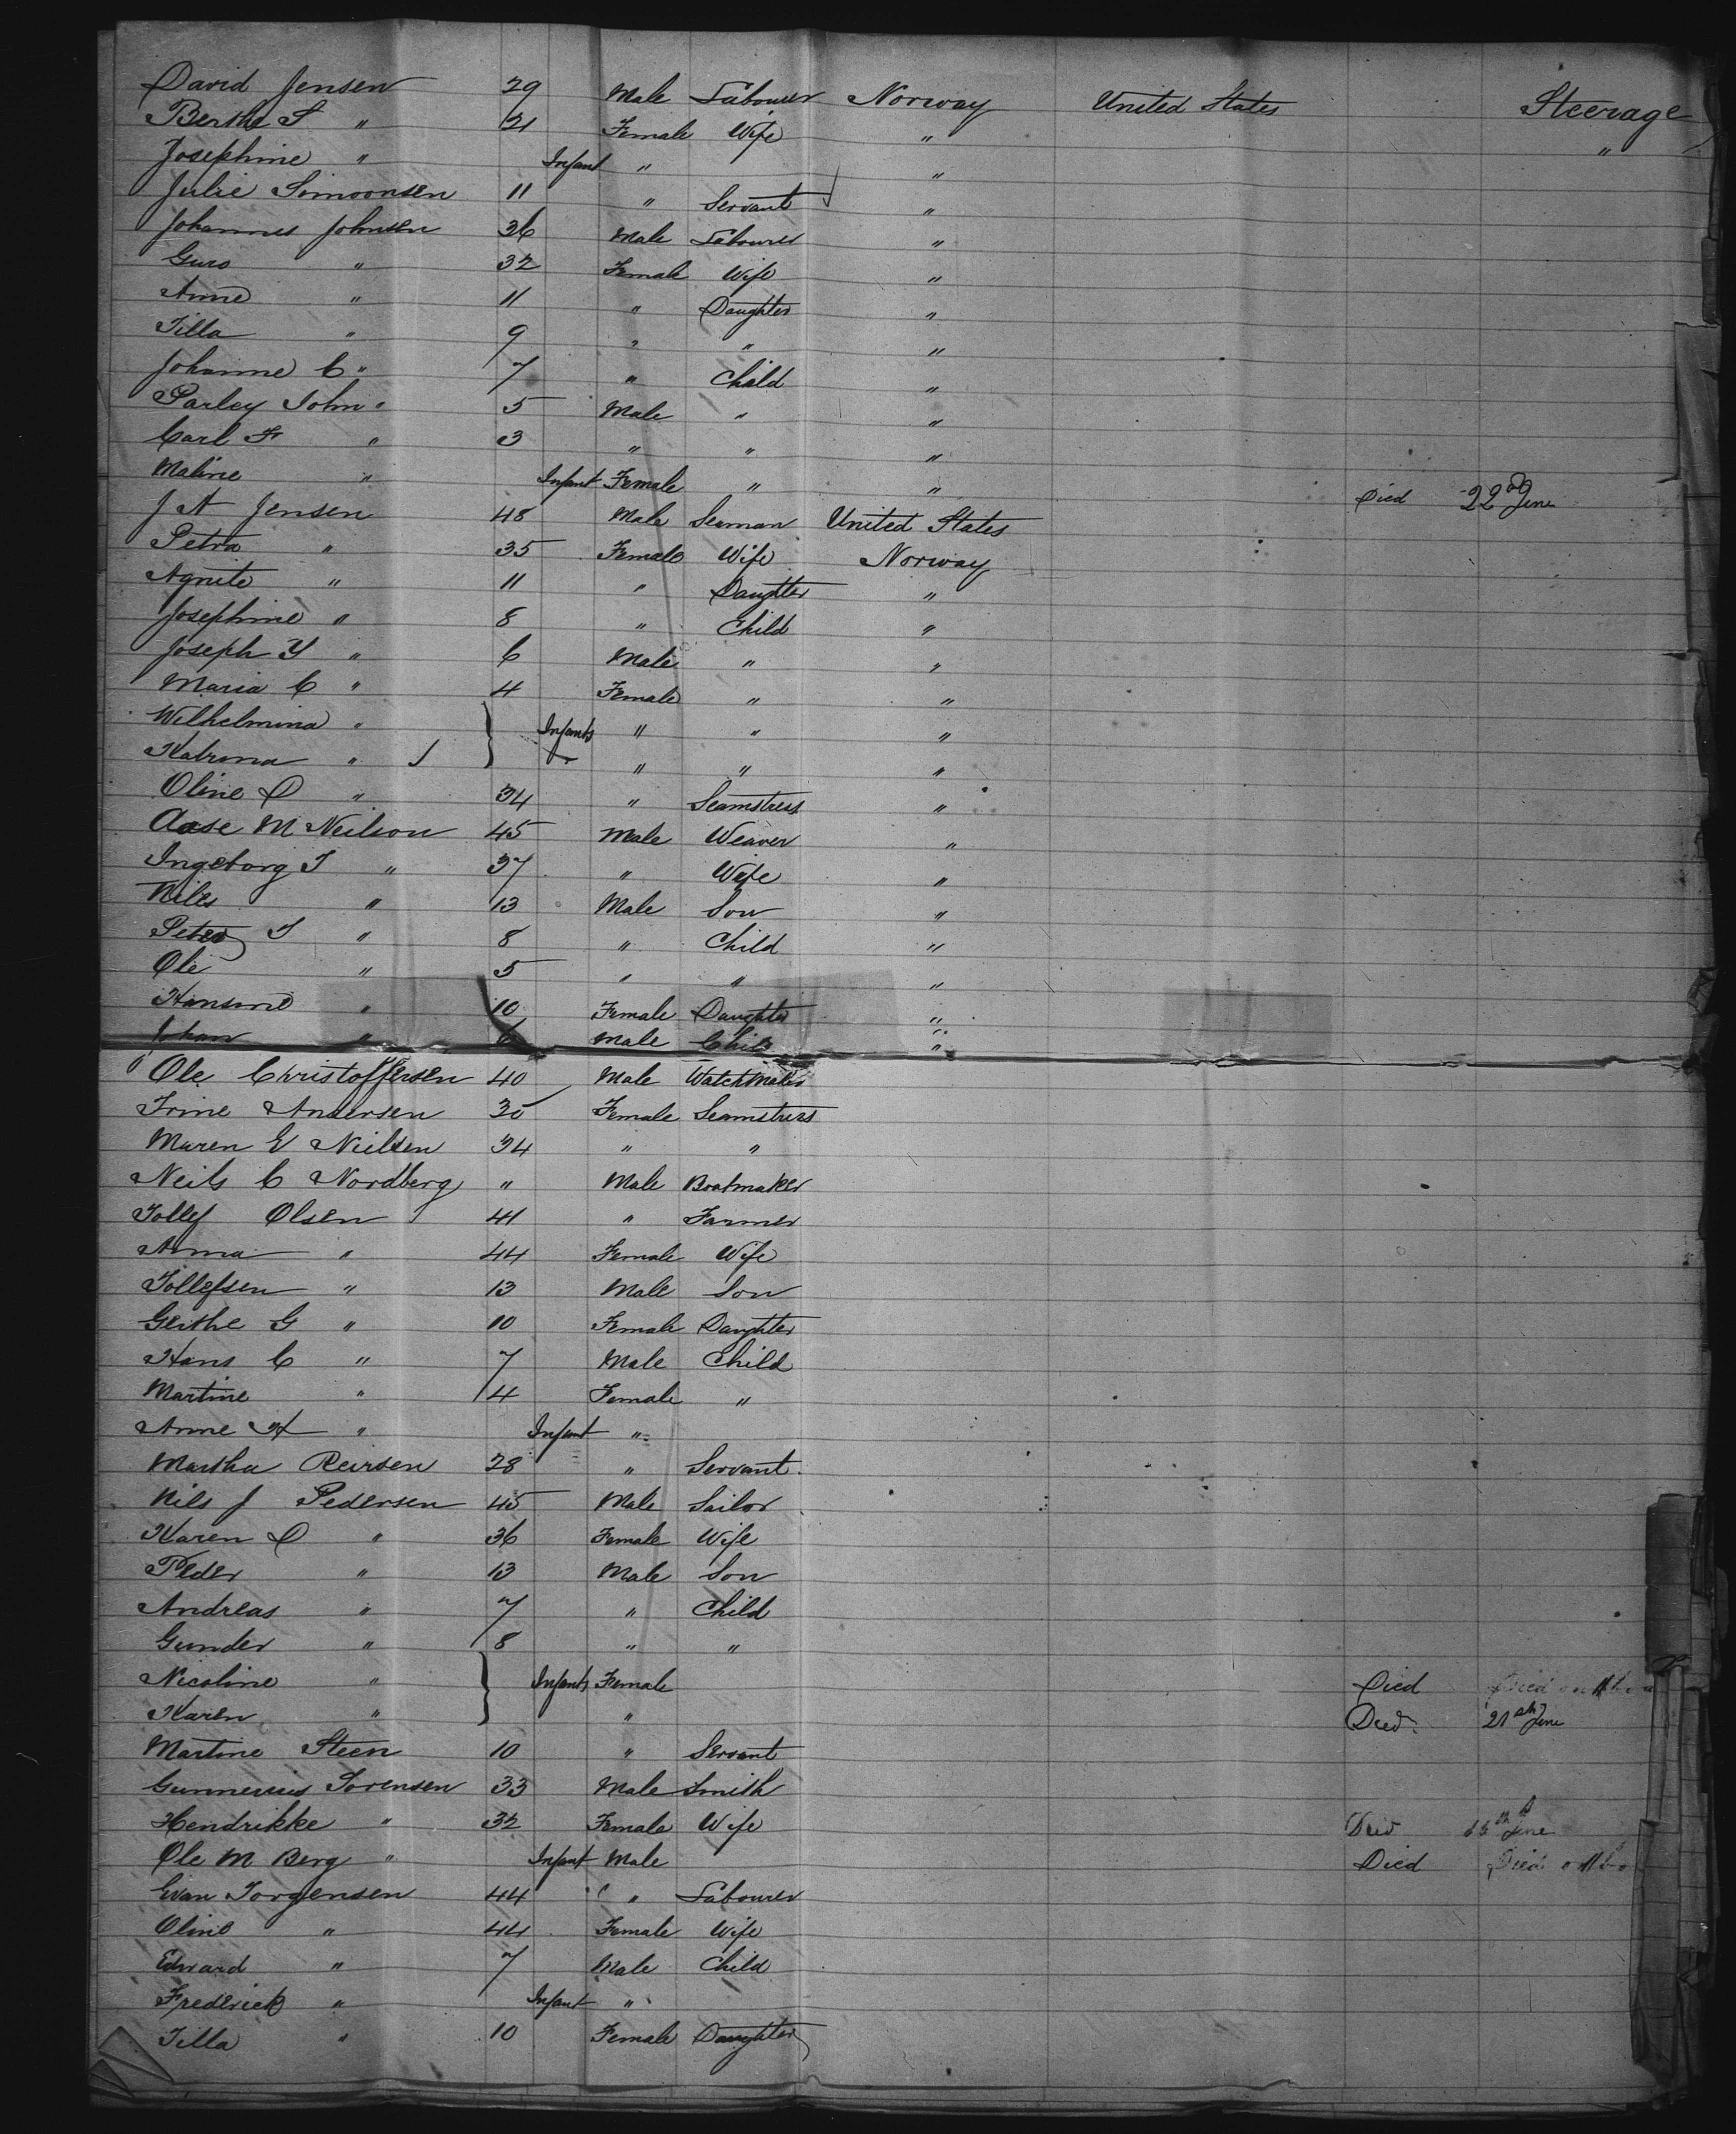 David Jensen 29 Male Labourer Norway United States Steerage
Berthe S " 21 Female Wife " "
Josephine " Infant " "
Julie Simonsen 11 " Servant "
Johannes Johnsen 36 Male Labourer "
Guro " 32 Female Wife "
Anne " 11 " Daughter "
Tilla " 9 " " "
Johanne C " 7 " Child "
Parley John " 5 Male " "
Carl F " 3 " " "
Maline " Infant Female " " Died 22nd June
J A Jensen 48 Male Seaman United States
Petra " 35 Female Wife Norway
Agnite " 11 " Daughter "
Josephine " 8 " Child "
Joseph Y " 6 Male " "
Maria C " 4 Female " "
Wilhelmina " Infants " " "
Katrina " " " "
Oline D " 34 " Seamstress "
Aase M Neilson 45 Male Weaver "
Ingeborg T " 37 " Wife "
Niles " 13 Male Son "
Peter T " 8 " Child "
Ole " 5 " " "
Hansine " 10 Female Daughter "
Johan " 6 Male Child "
Ole Christoffersen 40 Male Watchmaker
Trine Andersen 30 Female Seamstress
Maren E Nielsen 34 " "
Neils C Nordberg " Male Bootmaker
Tollef Olsen 41 " Farmer
Anna " 44 Female Wife
Tollefsen " 13 Male Son
Gerthe G " 10 Female Daughter
Hans C " 7 Male Child
Martine " 4 Female "
Anne H " Infant "
Martha Reirsen 28 " Servant
Nils J Pedersen 45 Male Sailor
Karen D " 36 Female Wife
Peder " 13 Male Son
Andreas " 7 " Child
Gunder " 8 " "
Nicoline " Infants Female Died Died
Karen " " Died 21st June
Martine Steen 10 " Servant
Gunnerius Sorensen 33 Male Smith
Hendrikke " 32 Female Wife Died June
Ole M Berg " Infant Male Died Died
Evan Torgensen 44 " Labourer
Oline " 44 Female Wife
Edward " 7 Male Child
Frederick " Infant "
Tilla " 10 Female Daughter